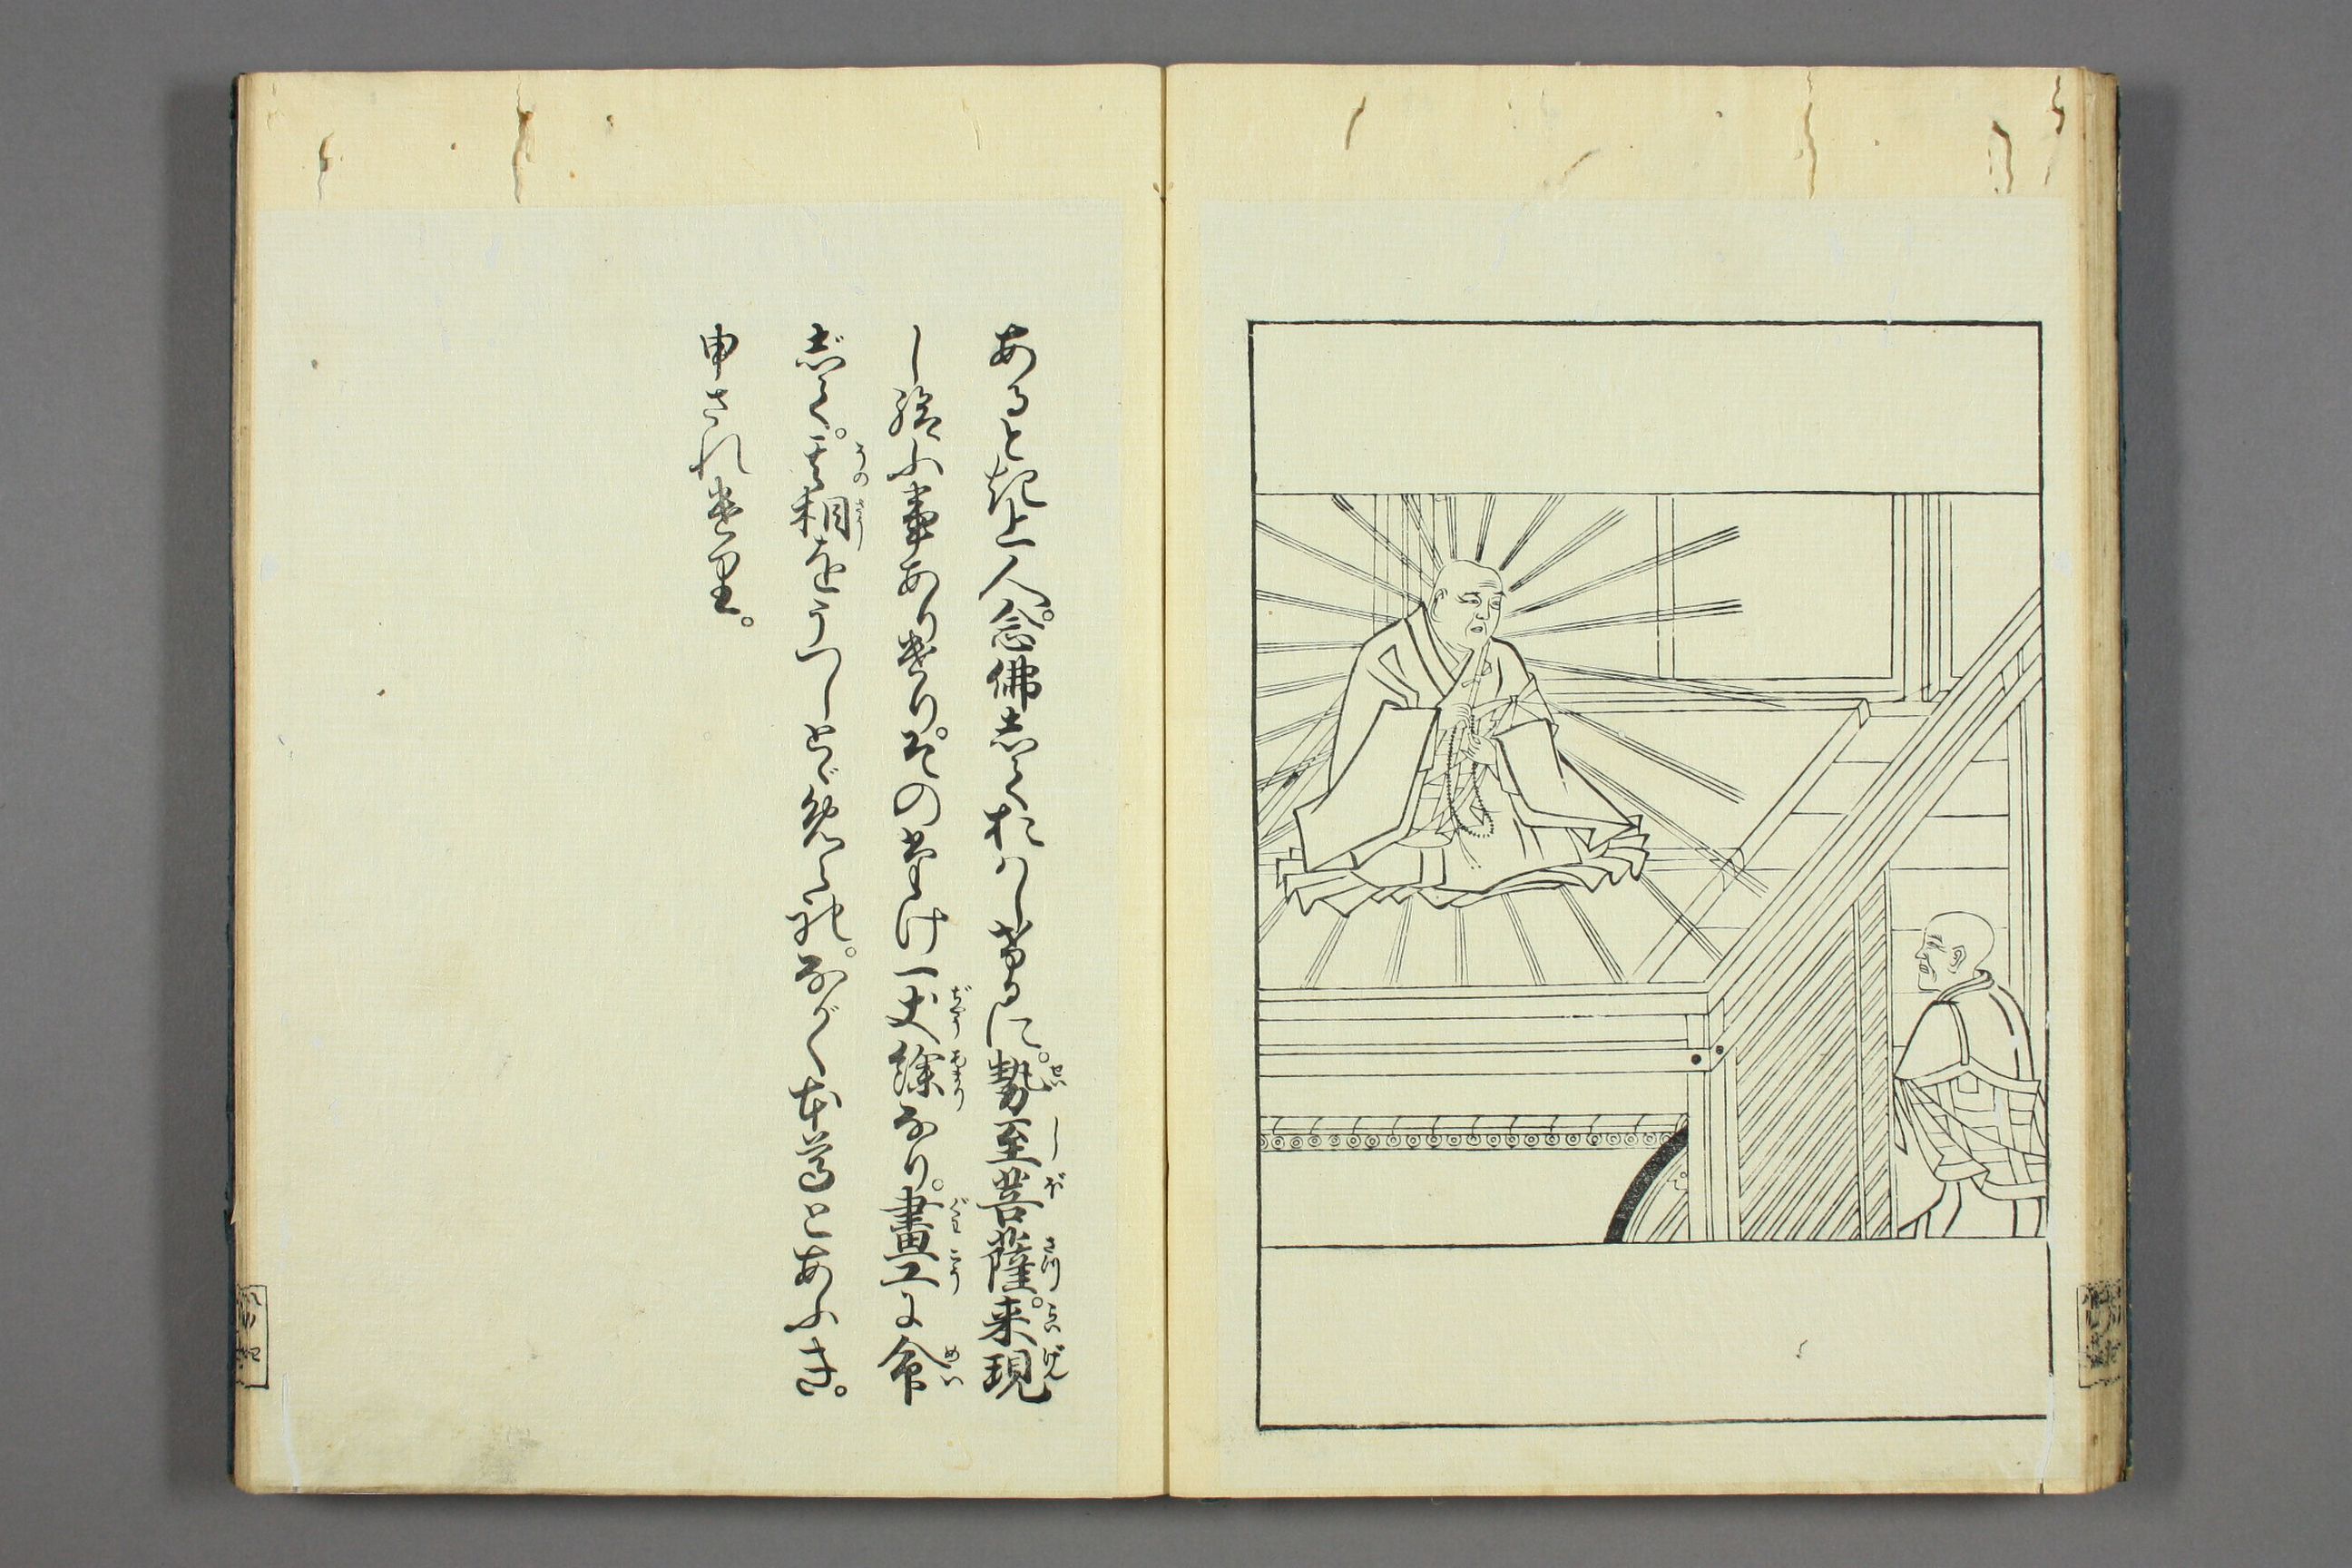 あると起上人。念佛志ておはしけるに。勢至菩薩。来現
し給ふ事ありけり。そのたけ一丈餘なり。畫工に命
じて。其相をうつしとゞめらる。ながく本尊とあふき。
申されけり。